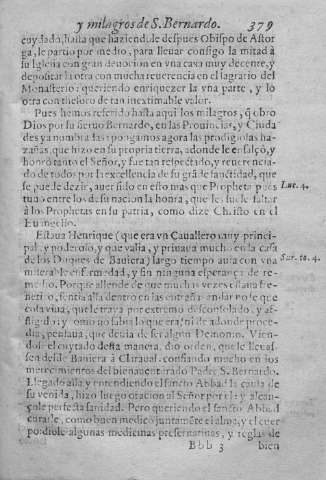 y milagros de S. Bernardo. 379
cuydado, hasta que haziendole despues Obispo de Astor
ga, le partio por medio, para lleuar consigo la mitad à
su Iglesia con gran deuocion en vna caxa muy decente, y
depositar la otra con mucha reuerencia en el sagrario del
Monasterio: queriendo enriquezer la vna parte, y lo
otra con thesoro de tan inestimable valor.
Pues hemos referido hasta aqui los milagros, q̃ obro
Dios por su sieruo Bernardo, en las Prouincias, y Ciuda
des ya nombradas: pongamos agora las prodigiosas ha-
zañas, que hizo en su propria tierra, adonde le ensalçò, y
honrò tanto el Señor, y fue tan respectado, y reuerencia-
do de todos por la excellencia de su grãde sanctidad, que
se puede dezir, auer sido en esto mas que Propheta pues
tuuo entre los de su nacion la honra, que les suele faltar
à los Prophetas en su patria, como dize Christo en el
Euangelio.
Luc. 4.
Estaua Henrique (que era vn Cauallero muy princi-
pal, y poderoso, y que valia, y priuaua mucho en la casa
de los Duques de Bauiera) largo tiempo auia con vna
miserable enfermedad, y sin ninguna esperança de re-
medio. Porque allende de que muchas vezes estaua fre-
netico, sentia alla dentro en las entrañas andar no se que
cosa viua, que le traya por extremo desconsolado, y af-
fligido: y como no sabia lo que era, ni de adonde proce-
dia, pensaua, que deuia de ser algun Demonio. Vien-
dose el cuytado desta manera, dio orden, que le lleuas-
sen desde Bauiera à Claraual, confiando mucho en los
merecimientos del bienauenturado Padre S. Bernardo.
Llegado alla y entendiendo el sancto Abbad la causa de
su venida, hizo luego oracion al Señor por el: y alcan-
çole perfecta sanidad. Pero queriendo el sancto Abbad
curarle, como buen medico juntamẽte el alma, y el cuer
po diole algunas medicinas preseruatiuas, y reglas de
Sur. to. 4.
Bbb 3 bien